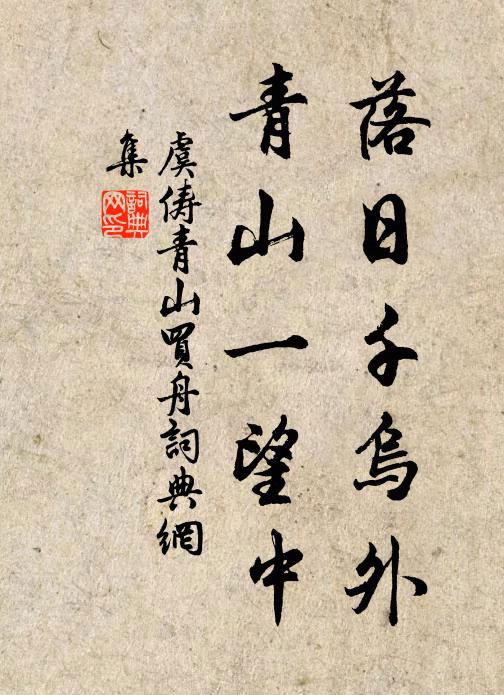 落日千烏外
青山一望中
虞儔青山買舟詞典網
集
詞典
网印